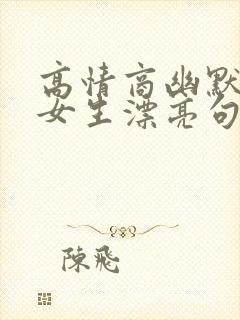 高情商幽默
女生漂亮句
陳飛